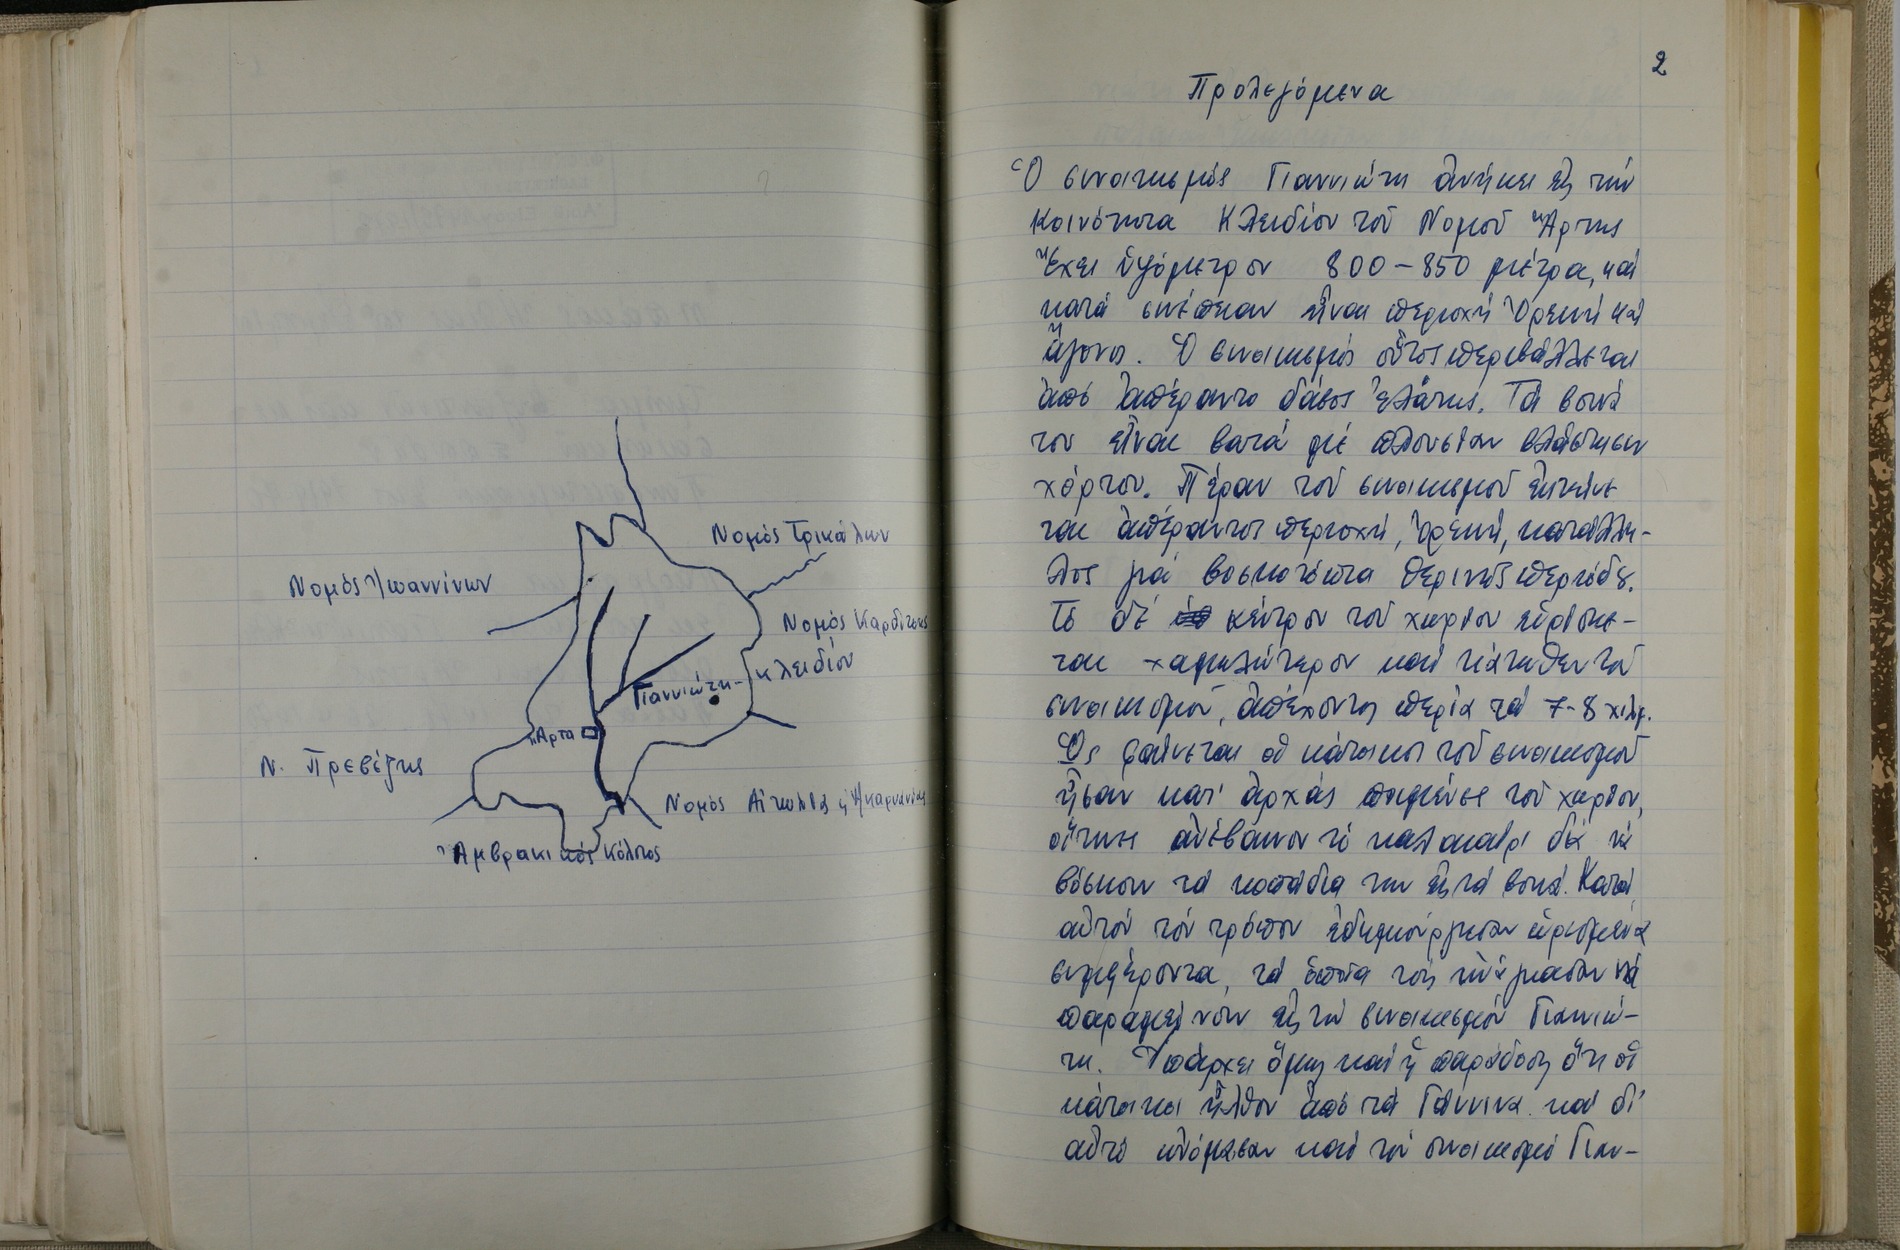 Νομός Τρικάλων
Νομός Ἰωαννίνων
Νομός Καρδίτσης
Κλειδίον
Γιαννιώτη
Ἄρτα
Ν. Πρεβέζης
Νομός Αἰτωλίας ἡ Ἀκαρνανίας
Ἀμβρακικός Κόλπος
2
Προλεγόμενα
Ὁ συνοικισμός Γιαννιώτη ἀνήκει εἰς τήν
κοινότητα Κλειδίον τοῦ Νομοῦ Ἄρτης
Ἔχει ὑψόμετρον 800-850 μέτρα, καί
κατά συνέπειαν εἶναι περιοχή Ὀρεινή καί
ἄγονος. Ὁ συνοικισμός οὗτος περιβάλλεται
ἀπό ἀπέραντο δάσος ἐλάτης. Τά βουνά
του εἶναι βατά μέ πλουσίαν βλάστησιν
χόρτου. Πέραν τοῦ συνοικισμοῦ ἐκτείνε
ται ἀπέραντος περιοχή, Ὀρεινή, κατάλλη-
λος γιά βοσκοτόπια θερινῆς περιόδου.
Τό δέ κέντρον τοῦ χωρίου εὑρίσκε-
ται χαμηλώτερον καί κάτωθεν τοῦ
συνοικισμοῦ, ἀπέχοντος περίπ τά 7-8 χιλμ.
Ὡς φαίνεται οἱ κάτοικοι τοῦ συνοικισμοῦ
ἦσαν κατ' ἀρχάς ποιμένες τοῦ χωρίου,
οἵτινες ἀνέβαινον τό καλοκαίρι διά νά
βόσκουν τά κοπάδια των εἰς τά βουνά. Κατά
αὐτόν τόν τρόπον ἐδημιούργησαν ὡρισμένα
συμφέροντα, τά ὁποῖα τούς ἠνάγκασαν νά
παραμείνουν εἰς τόν συνοικισμόν Γιαννιώ-
τη. Ὑπάρχει ὅμως καί ἡ παράδοσις ὅτι οἱ
κάτοικοι ἦλθον ἀπό τά Γιάννινα καί δι'
αὐτό ὠνόμασαν καί τόν συνοικισμό Γιαν-